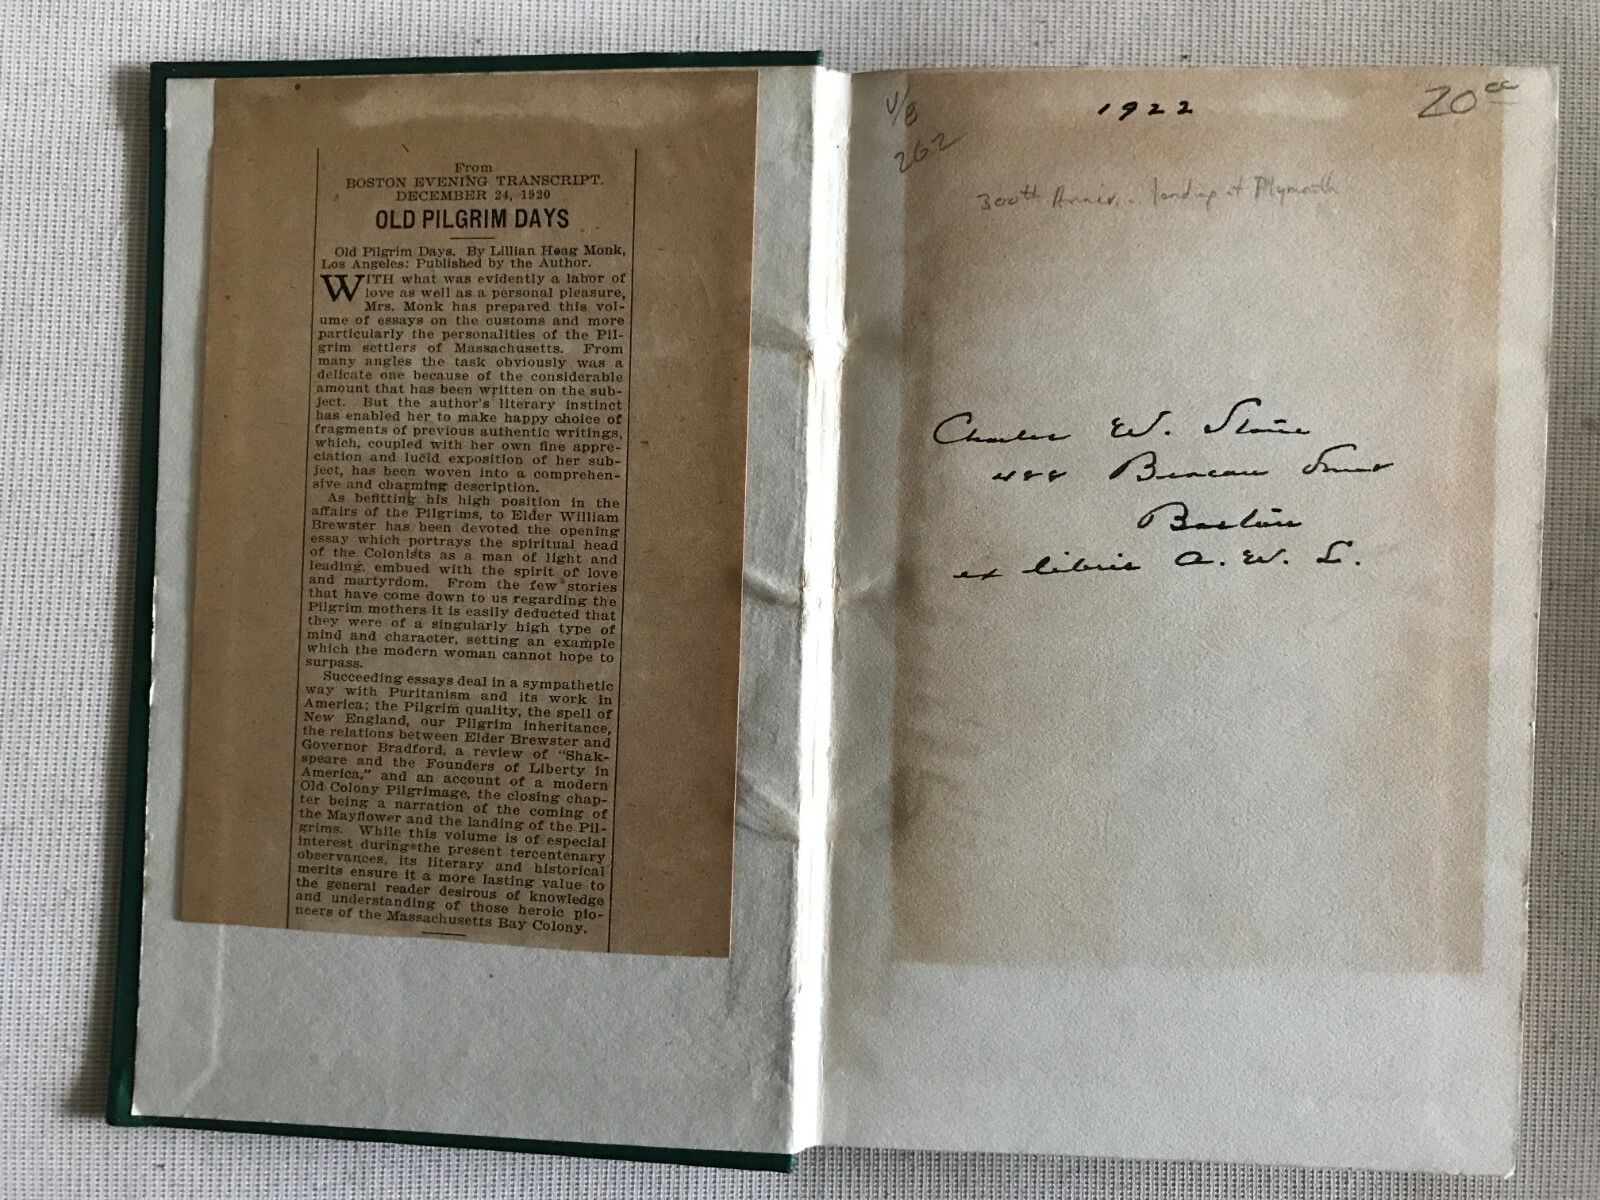 From
BOSTON EVENING TRANSCRIPT.
DECEMBER 24, 1920
OLD PILGRIM DAYS
Old Pilgrim Days. By Lillian Hoag Monk,
Los Angeles: Published by the Author.
WITH what was evidently a labor of
love as well as a personal pleasure,
Mrs. Monk has prepared this vol-
ume of essays on the customs and more
particularly the personalities of the Pil-
grim settlers of Massachusetts. From
many angles the task obviously was a
delicate one because of the considerable
amount that has been written on the sub-
ject. But the author's literary instinct
has enabled her to make happy choice of
fragments of previous authentic writings,
which, coupled with her own fine appre-
ciation and lucid exposition of her sub-
ject, has been woven into a comprehen-
sive and charming description.
As befitting his high position in the
affairs of the Pilgrims, to Elder William
Brewster has been devoted the opening
essay which portrays the spiritual head
of the Colonists as a man of light and
leading, embued with the spirit of love
and martyrdom. From the few stories
that have come down to us regarding the
Pilgrim mothers it is easily deducted that
they were of a singularly high type of
mind and character, setting an example
which the modern woman cannot hope to
surpass.
Succeeding essays deal in a sympathetic
way with Puritanism and its work in
America; the Pilgrim quality, the spell of
New England, our Pilgrim inheritance,
the relations between Elder Brewster and
Governor Bradford, a review of "Shak-
speare and the Founders of Liberty in
America," and an account of a modern
Old Colony Pilgrimage, the closing chap-
ter being a narration of the coming of
the Mayflower and the landing of the Pil-
grims. While this volume is of especial
interest during the present tercentenary
observances, its literary and historical
merits ensure it a more lasting value to
the general reader desirous of knowledge
and understanding of those heroic pio-
neers of the Massachusetts Bay Colony.
V/8
262
1922
20
300th Anniv. - landing at Plymouth
Charles W.
488 Beacon Street
Boston
ex libris A. W. L.